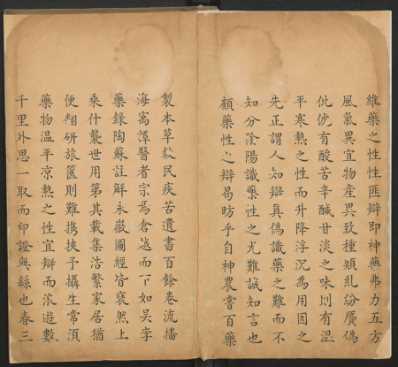 維藥之性性匪辯即神無弗力五方
風氣異宜物產異致種類紛偽
有酸苦辛鹹甘淡之味則有溫
平寒熱之性而升降浮沉爲用因之
先正謂人知辯真偽識藥之難而不
知分陰陽識藥性之尤難誠知言也
顧藥性之辯曷昉乎自神農嘗百藥
製本草救民疾苦遺書百餘卷流播
海寓譚醫者宗焉倉越而下如吳李
藥錄陶蘇註解永徽圖經皆裒然上
乘什襲世用第其載集浩繁家居猶
便翔研旅篋則難攜挾予攝生常須
藥物溫平凉熱之性宜辯而宦遊數
千里外思一取而印證無繇也春三